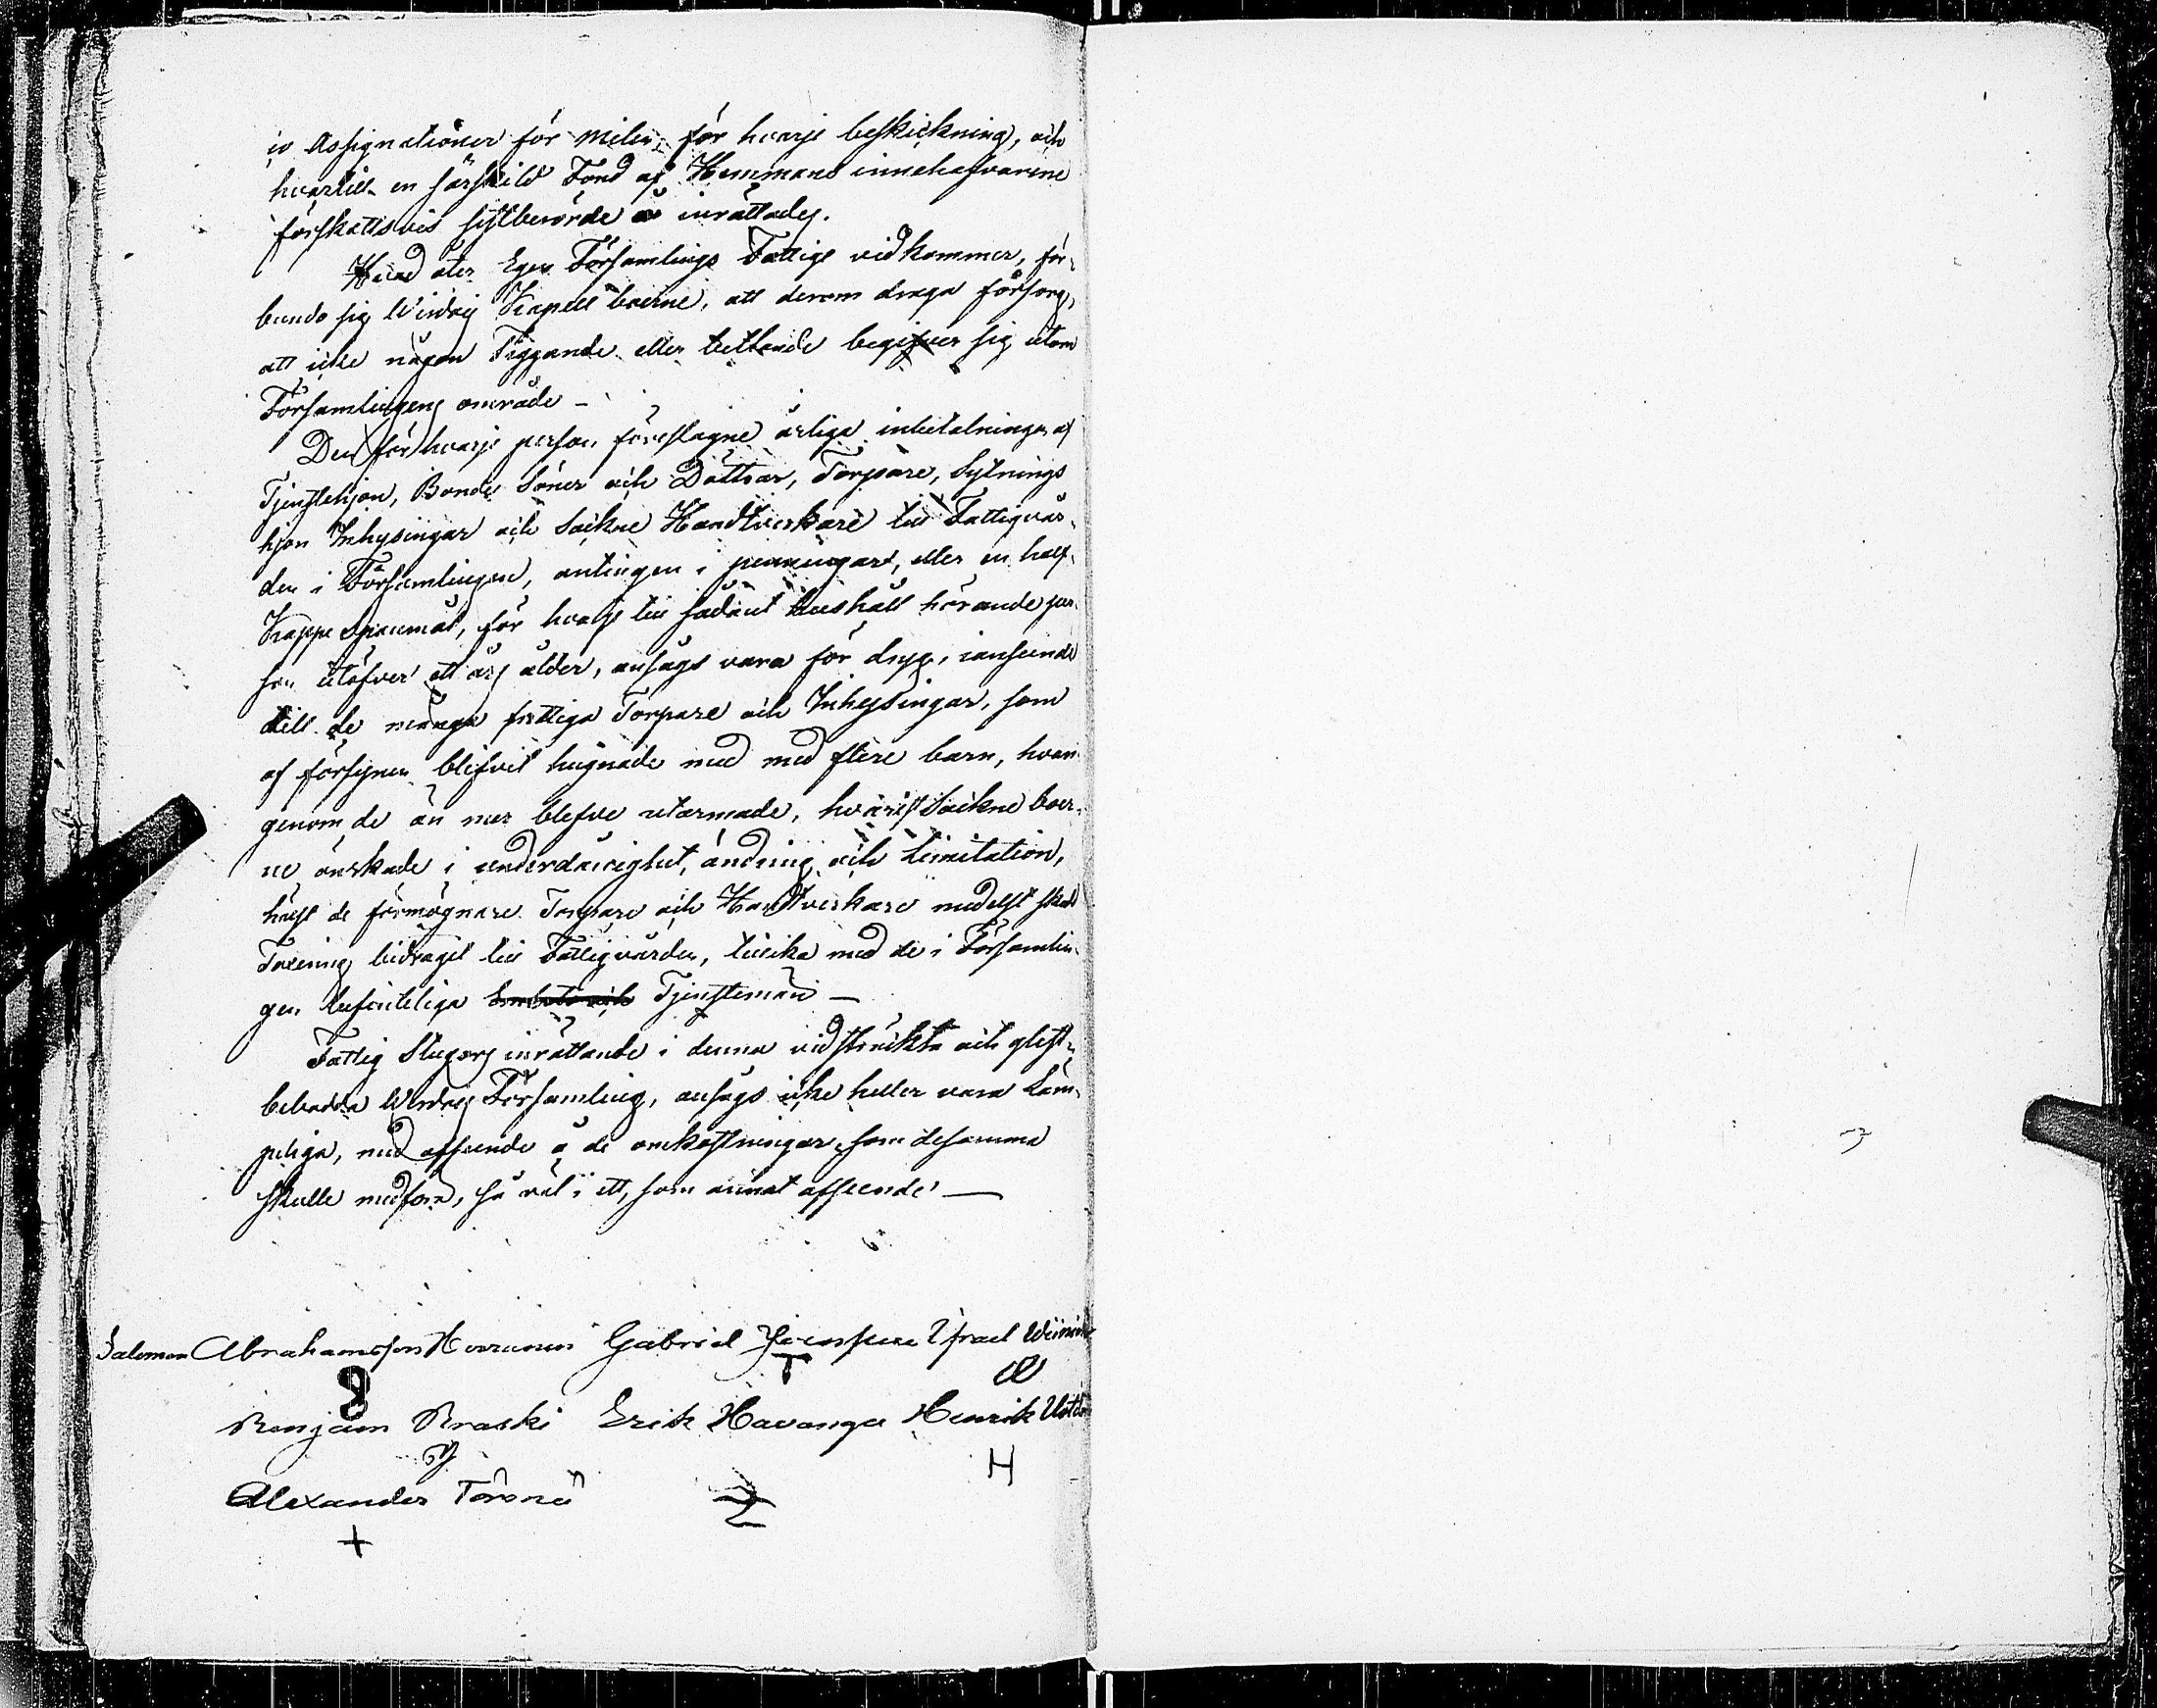 io Assignationer för milen, för hvarje beskickning, och
hvartill en särskild Fond af Hemmans innehafvarene
förskattsvis sistberörde inrättades.
Hvad åter Egen Församlings Fattige vidkommer, för-
bundo sig Wirdois Kapell boerne, att derom draga försorg,
att icke någon Tiggande eller bettlande begifver sig utom
Församlingens område –
Den för hvarje person föreslagne årliga inbetalningen af
Tjenstehjon, Bonde Söner och Döttrar, Torpare, Sytnings
hjon Inhysingar och Sockne Handtverkare till Fattigvår-
den i Församlingen, antingen i penningar, eller en half
Kappe Spanmål, för hvarje till sådant hushåll hörande per-
son utöfver ett års ålder, ansågs vara för dryg, i anseende
till de många fattiga Torpare och Inhysingar, som
af försynen blifvit hugnade med med flere barn, hvari-
genom de än mer blefve utarmade, hvarföre Sockne boer-
ne önskade i underdånighet, ändring och Limitation,
helst de förmögnare Torpare och Handtverkare medelst skatt
Taxering bidraget till Fattigvården, tillika med de i Församlin-
gen befinteliga Tjensteman –
Fattig Stugors inrättande i denna vidsträckta och glest-
bebodda Wirdois Församling, ansågs icke heller vara Läm-
peliga, med afseende å de omkostningar, som desamma
skulle medföra, så väl i ett, som annat afseende –
Salomon Abrahamsson Gabriel Israel
Benjam Kraski Erik Havanga Henrik
H
Alexander Törmä
+